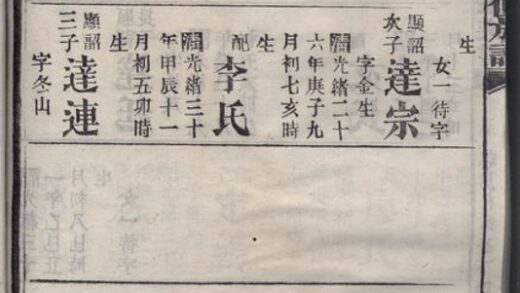 生
女一待字
顯韶次子達宗
字金生
清光緒二十
六年庚子九
月初七亥時
生
配李氏
清光緒三十
年甲辰十一
月初五卯時
生
顯韶三子達連
字冬山